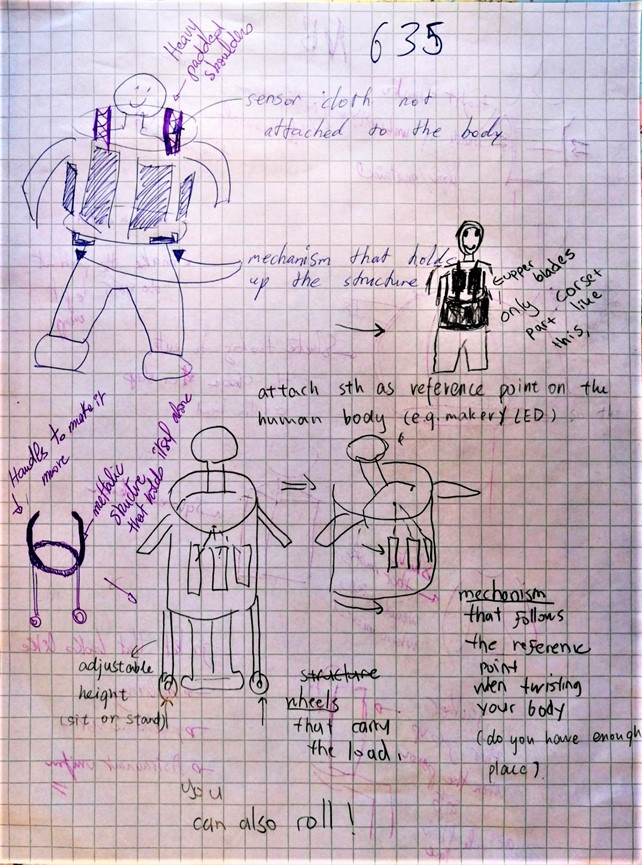 635
Heavy
padded
shoulders
sensor cloth not
attached to the body
mechanism that holds
up the structure
upper blades
only corset
part like
this,
attach sth as reference point on the
human body (e.g. maker / LED)
Handles to make it
move
metallic
that holds itself alone
adjustable
height
(sit or stand)
structure
wheels
that carry
the load.
mechanism
that follows
the reference
point
when twisting
your body
(do you have enough
place)
you
can also roll!